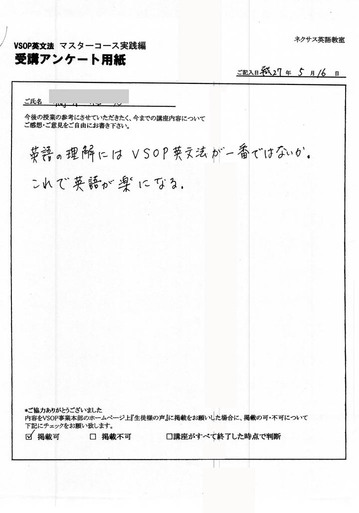 ネクサス英語教室
VSOP英文法 マスターコース実践編
受講アンケート用紙
ご記入日 27年 5月 16日
ご氏名
今後の授業の参考にさせていただきたく、今までの講座内容について
ご感想・ご意見をご自由にお書き下さい。
英語の理解にはVSOP英文法が一番ではないか。
これで英語が楽になる。
*ご協力ありがとうございました
内容をVSOP事業本部のホームページ上『生徒様の声』に掲載をお願いした場合に、掲載の可・不可について
下記にチェックをお願い致します。
☑ 掲載可 □ 掲載不可 □講座がすべて終了した時点で判断